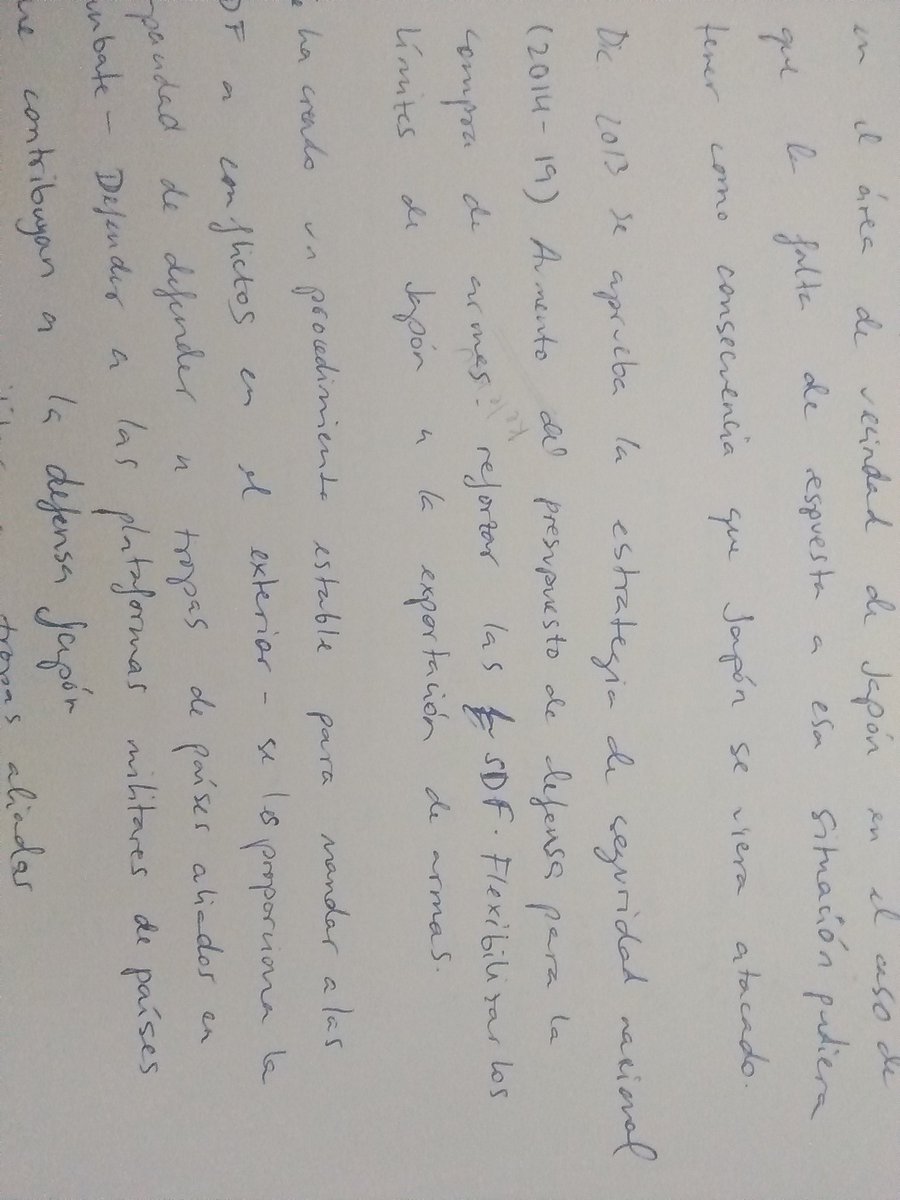 en el área de vecindad de Japón en el caso de
que la falta de respuesta a esa situación pudiera
tener como consecuencia que Japón se viera atacado.
Dic 2013 se aprueba la estrategia de seguridad nacional
(2014-19) Aumento del presupuesto de defensa para la
compra de armas. reforzar las SDF. Flexibilizar los
límites de Japón a la exportación de armas.
ha creado un procedimiento estable para mandar a las
DF a conflictos en el exterior - se les proporciona la
pacidad de defender a tropas de países aliados en
mbate - Defender a las plataformas militares de países
ue contribuyan a la defensa Japón
tropas aliadas